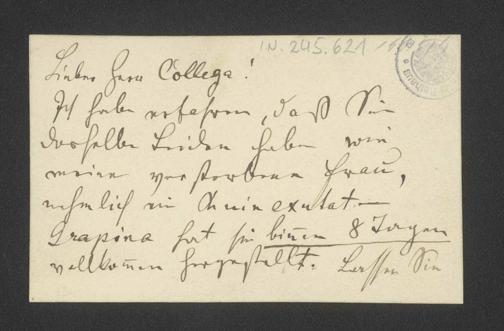 I.N. 245.621
Lieber Herr Collega!
Ich habe erfahren, daß Sie
dasselbe Leiden haben wie
meine verstorbene Frau,
nehmlich ein
hat sie binnen 8 Tagen
vollkommen hergestellt. Lassen Sie